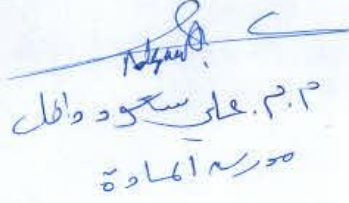 م.م. علي سعود داخل
مدرس المادة